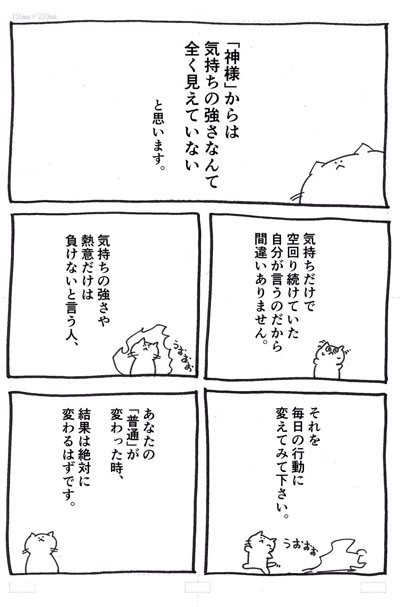 「神様」からは
気持ちの強さなんて
全く見えていない
と思います。
気持ちだけで
空回り続けていた
自分が言うのだから
間違いありません。
気持ちの強さや
熱意だけは
負けないと言う人、
うおぉぉ
それを
毎日の行動に
変えてみて下さい。
うおぉぉ
あなたの
「普通」が
変わった時、
結果は絶対に
変わるはずです。